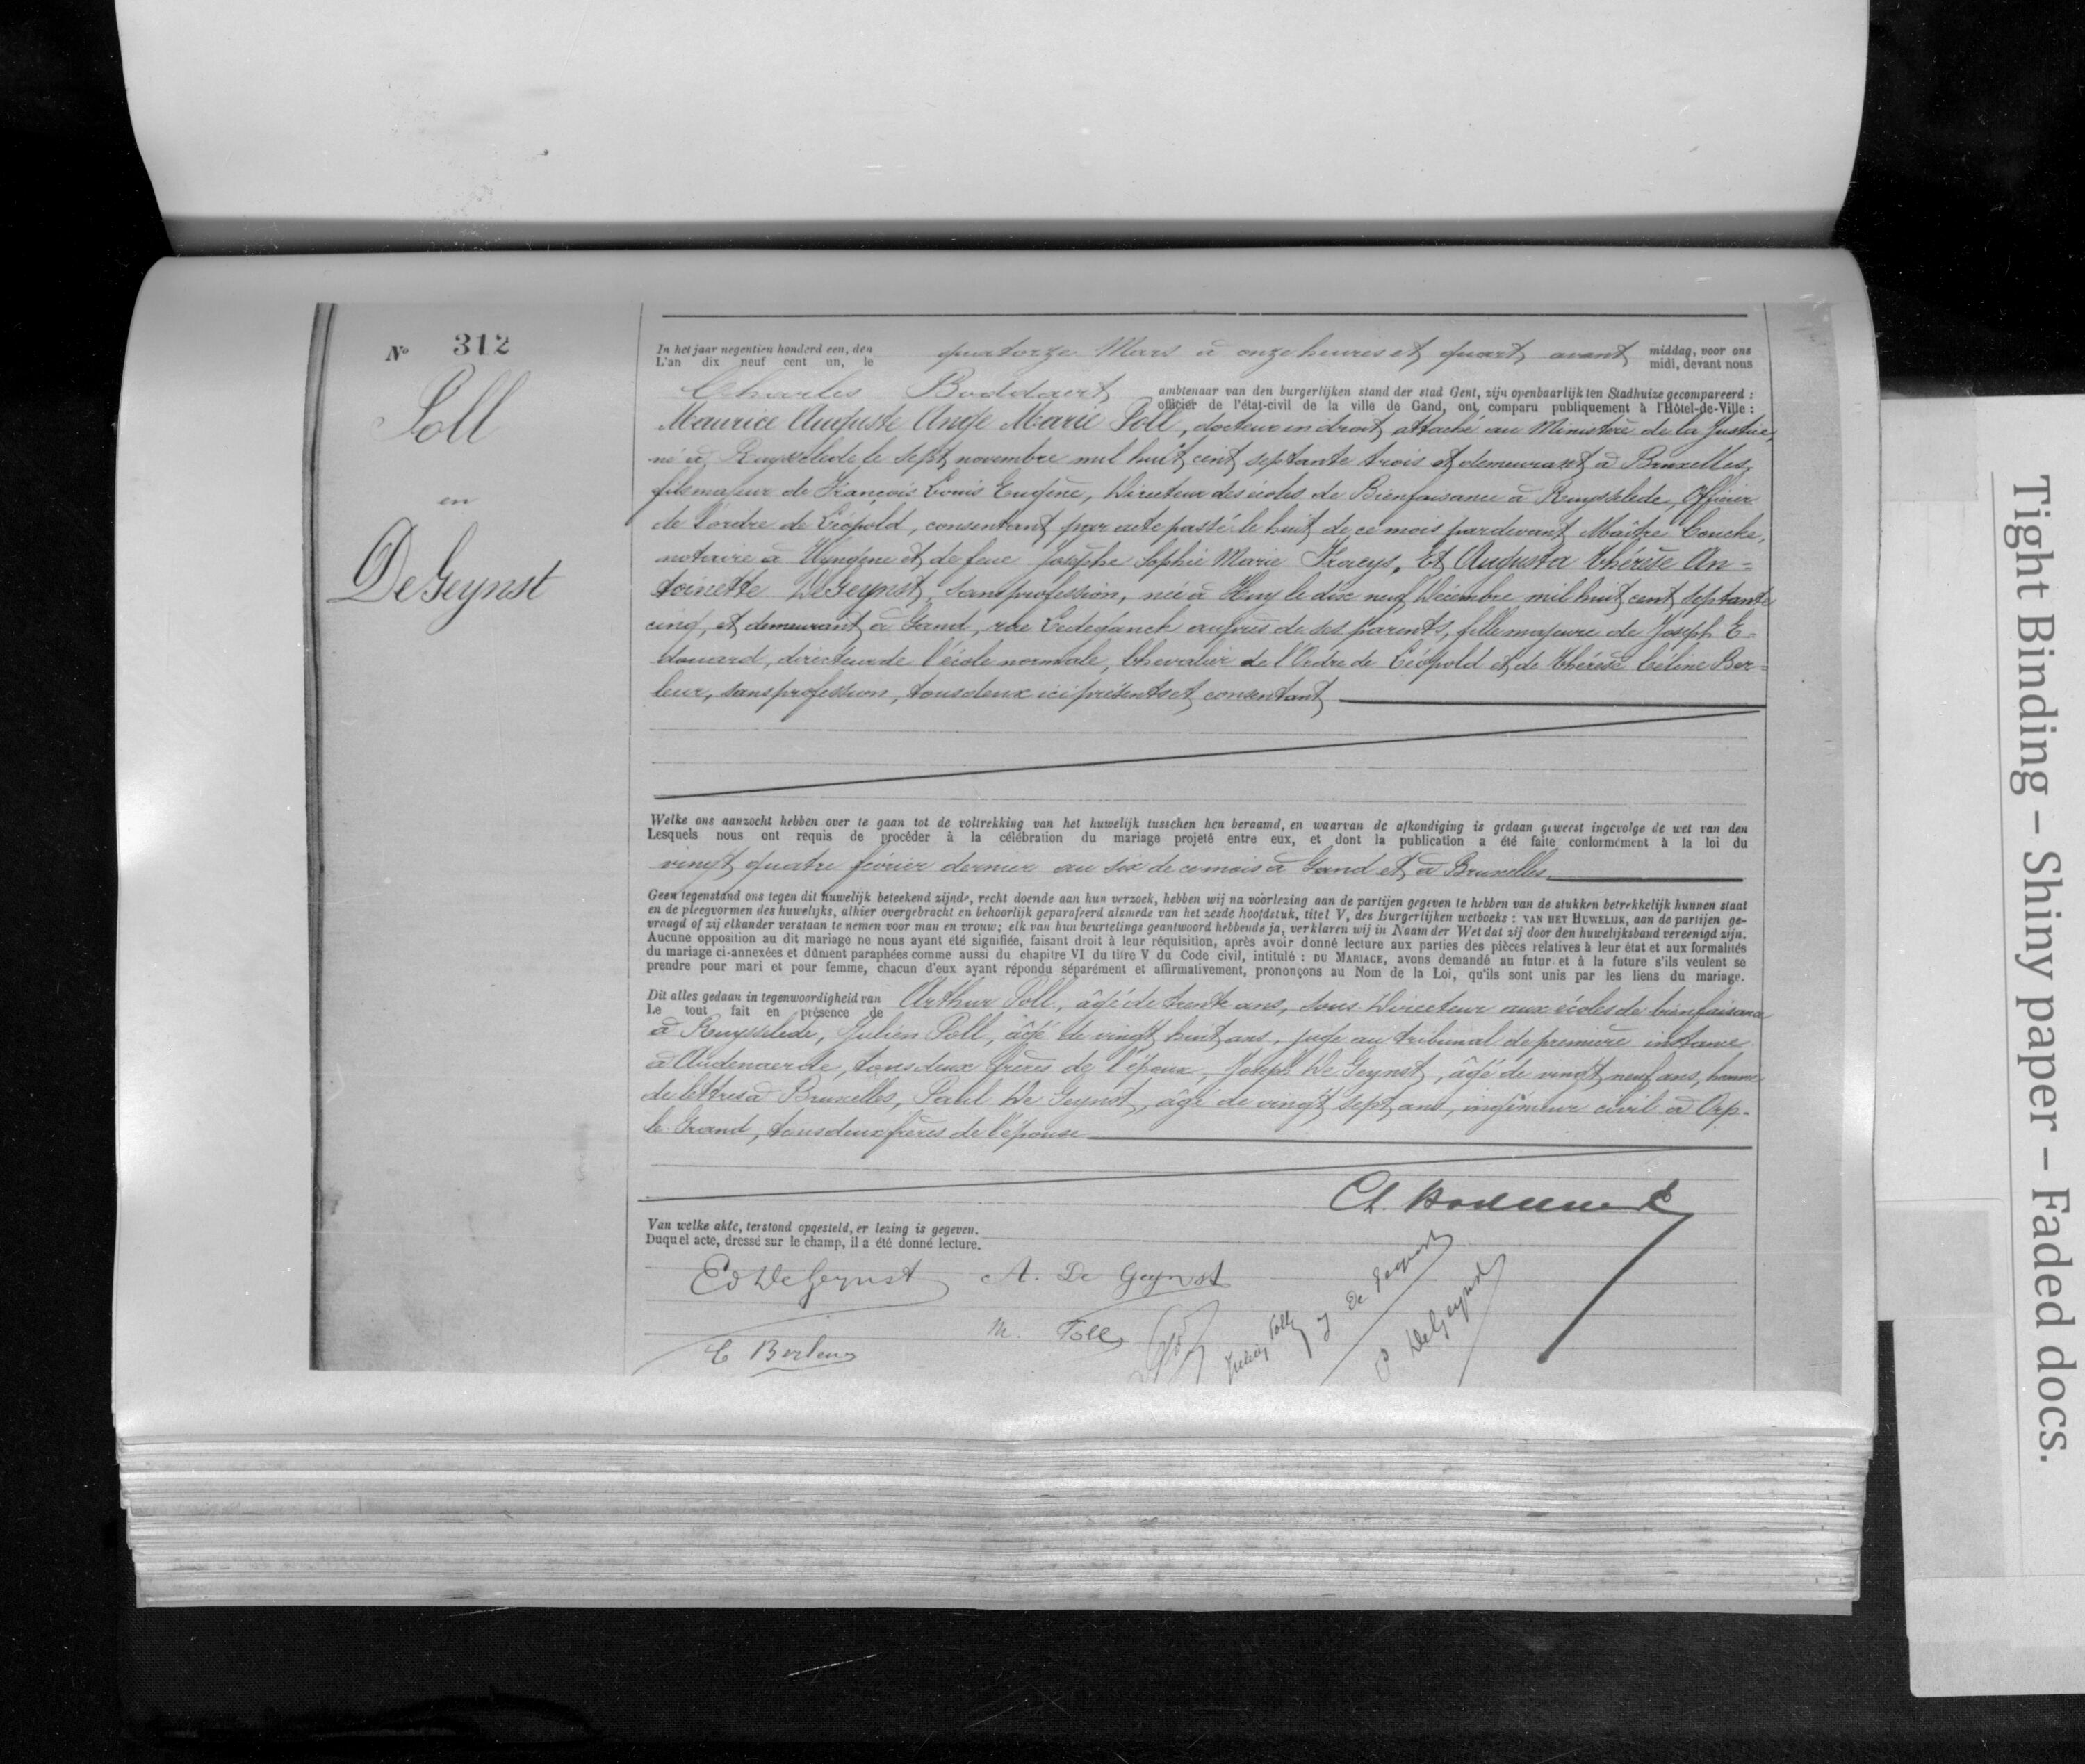 Nº 312
Poll
en
De Geynst
In het jaar negentien honderd een, den
L'an dix neuf cent un, le
quatorze Mars à onze heures et quart avant
middag, voor ons
midi, devant nous
Charles Boddaert
ambtenaar van den burgerlijken stand der stad Gent, zijn openbaarlijk ten Stadhuize gecompareerd :
officier de l'état-civil de la ville de Gand, ont comparu publiquement à l'Hôtel-de-Ville :
Maurice Auguste Ange Marie Poll, docteur en droit, attaché au Ministère de la Justice,
né à Ruysselede le sept novembre mil huit cent septante trois et demeurant à Bruxelles,
fils majeur de François Louis Eugène, Directeur des écoles de Bienfaisance à Ruysselede, Officier
de l'ordre de Léopold, consentant par acte passé le huit de ce mois pardevant Maître Couche,
notaire à Wyngene et de feue Josèphe Sophie Marie, Et Augusta Thérèse An=
toinette De Geynst, sans profession, née à Huy le dix neuf Décembre mil huit cent septante
cinq, et demeurant à Gand, rue Ledeganck auprès de ses parents, fille majeure de Joseph E=
douard, directeur de l'école normale, Chevalier de l'Ordre de Léopold et de Thérèse Céline Ber=
leur, sans profession, tous deux ici présents et consentant
Welke ons aanzocht hebben over te gaan tot de voltrekking van het huwelijk tusschen hen beraamd, en waarvan de afkondiging is gedaan geweest ingevolge de wet van den
Lesquels nous ont requis de procéder à la célébration du mariage projeté entre eux, et dont la publication a été faite conformément à la loi du
vingt quatre février dernier au six de ce mois à Gand et à Bruxelles
Geen tegenstand ons tegen dit huwelijk beteekend zijnde, recht doende aan hun verzoek, hebben wij na voorlezing aan de partijen gegeven te hebben van de stukken betrekkelijk hunnen staat
en de pleegvormen des huwelijks, alhier overgebracht en behoorlijk geparafeerd alsmede van het zesde hoofdstuk, titel V, des Burgerlijken wetboeks : VAN HET HUWELIJK, aan de partijen ge-
vraagd of zij elkander verstaan te nemen voor man en vrouw; elk van hun beurtelings geantwoord hebbende ja, verklaren wij in Naam der Wet dat zij door den huwelijksband vereenigd zijn.
Aucune opposition au dit mariage ne nous ayant été signifiée, faisant droit à leur réquisition, après avoir donné lecture aux parties des pièces relatives à leur état et aux formalités
du mariage ci-annexées et dûment paraphées comme aussi du chapitre VI du titre V du Code civil, intitulé : DU MARIAGE, avons demandé au futur et à la future s'ils veulent se
prendre pour mari et pour femme, chacun d'eux ayant répondu séparément et affirmativement, prononçons au Nom de la Loi, qu'ils sont unis par les liens du mariage.
Dit alles gedaan in tegenwoordigheid van
Le tout fait en présence de
Arthur Poll, âgé de trente ans, sous Directeur aux écoles de bienfaisance
à Ruysselede, Julien Poll, âgé de vingt huit ans, juge au tribunal de première instance
à Audenaerde, tous deux frères de l'époux, Joseph De Geynst, âgé de vingt neuf ans, homme
de lettres à Bruxelles, Paul De Geynst, âgé de vingt sept ans, ingénieur civil à Orp-
le Grand, tous deux frères de l'épouse
Ch. Boddaert
Van welke akte, terstond opgesteld, er lezing is gegeven.
Duquel acte, dressé sur le champ, il a été donné lecture.
Ed De Geynst A. De Geynst
J De Geynst
P DeGeynst
Julien Poll
M. Poll
C Berleur
Tight Binding – Shiny paper – Faded docs.